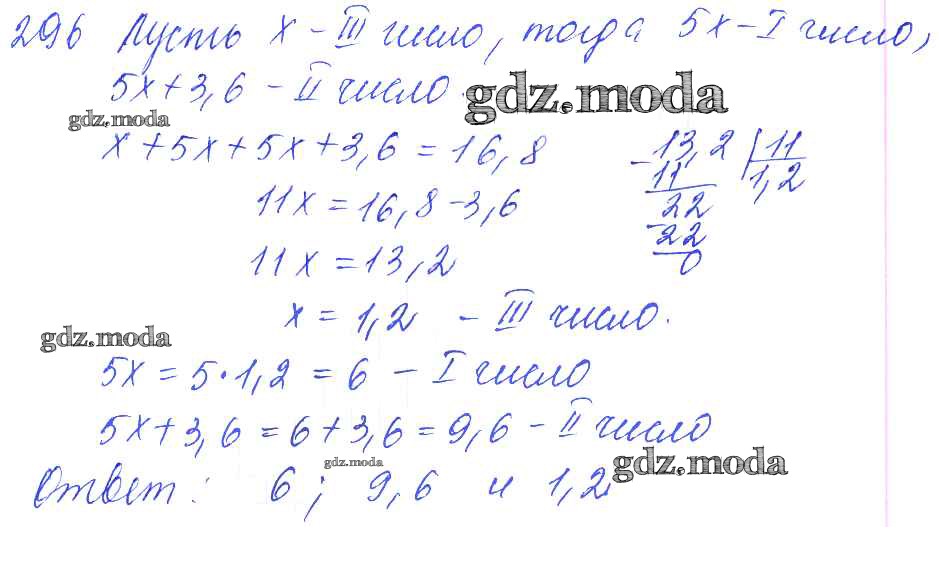 296 Пусть x - III число, тогда 5x - I число,
5x + 3,6 - II число.
gdz.moda
gdz.moda
x + 5x + 5x + 3,6 = 16,8
11x = 16,8 - 3,6
11x = 13,2
x = 1,2 - III число.
- 13,2 | 11
11 1,2
22
- 22
0
gdz.moda
5x = 5 · 1,2 = 6 - I число
5x + 3,6 = 6 + 3,6 = 9,6 - II число
gdz.moda
gdz.moda
Ответ: 6; 9,6 и 1,2